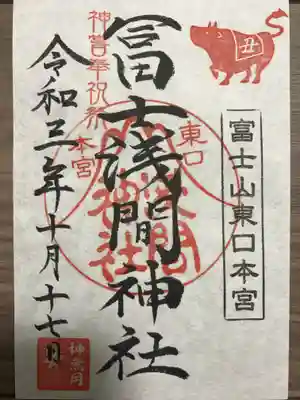 丑
富士山東口本宮
冨士浅間神社
東口
本宮
浅間
神社
令和三年十月十七日
神無月